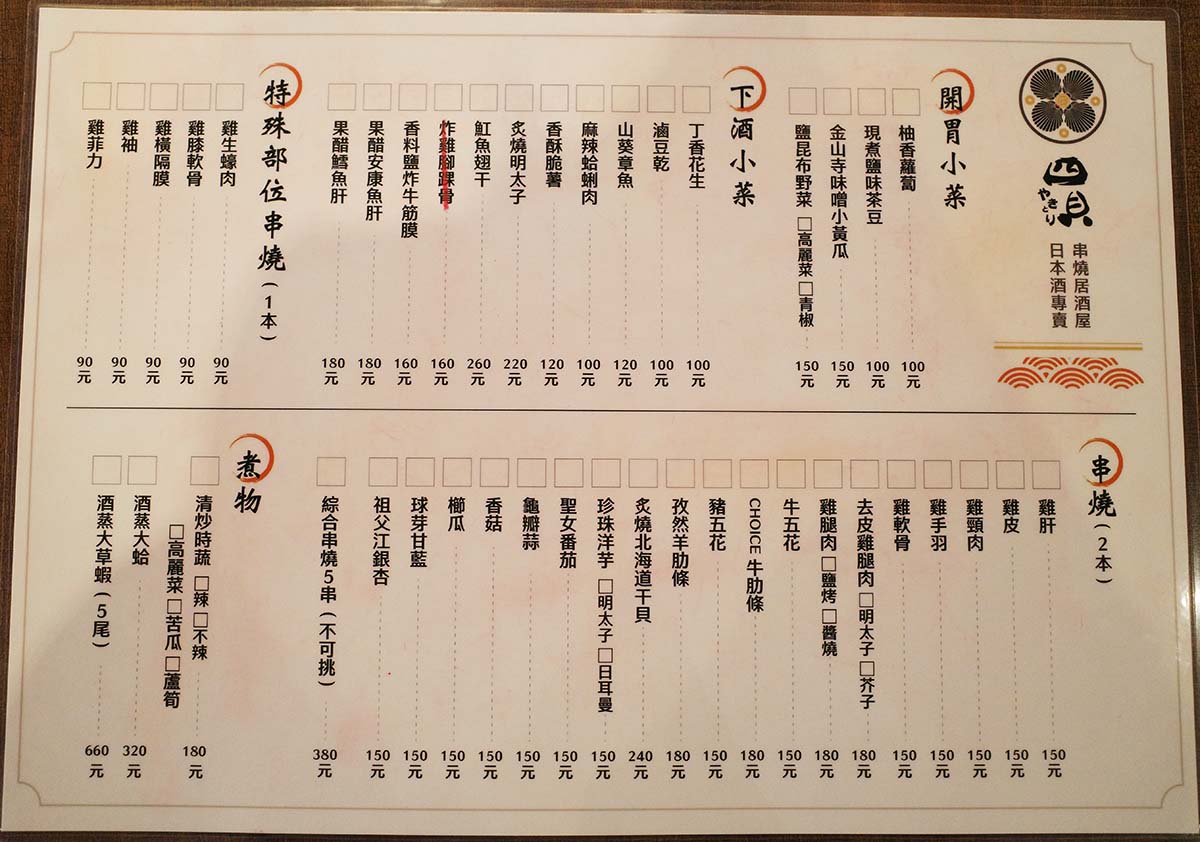 四貝
やきとり
串燒居酒屋
日本酒專賣
開胃小菜
柚香蘿蔔 100元
現煮鹽味茶豆 100元
金山寺味噌小黃瓜 150元
鹽昆布野菜 □高麗菜 □青椒 150元
下酒小菜
丁香花生 100元
滷豆乾 100元
山葵章魚 120元
麻辣蛤蜊肉 100元
香酥脆薯 120元
炙燒明太子 220元
魟魚翅干 260元
炸雞腳踝骨 160元
香料鹽炸牛筋膜 160元
果醋安康魚肝 180元
果醋鱈魚肝 180元
特殊部位串燒(1本)
雞生蠔肉 90元
雞膝軟骨 90元
雞橫隔膜 90元
雞袖 90元
雞菲力 90元
串燒(2本)
雞肝 150元
雞皮 150元
雞頸肉 150元
雞手羽 150元
雞軟骨 150元
去皮雞腿肉 □明太子 □芥子 180元
雞腿肉 □鹽烤 □醬燒 180元
牛五花 150元
CHOICE 牛肋條 180元
豬五花 150元
孜然羊肋條 180元
炙燒北海道干貝 240元
珍珠洋芋 □明太子 □日耳曼 150元
聖女番茄 150元
龜瓣蒜 150元
香菇 150元
櫛瓜 150元
球芽甘藍 150元
祖父江銀杏 150元
綜合串燒5串(不可挑) 380元
煮物
清炒時蔬 □辣 □不辣 180元
□高麗菜 □苦瓜 □蘆筍
酒蒸大蛤 320元
酒蒸大草蝦(5尾) 660元